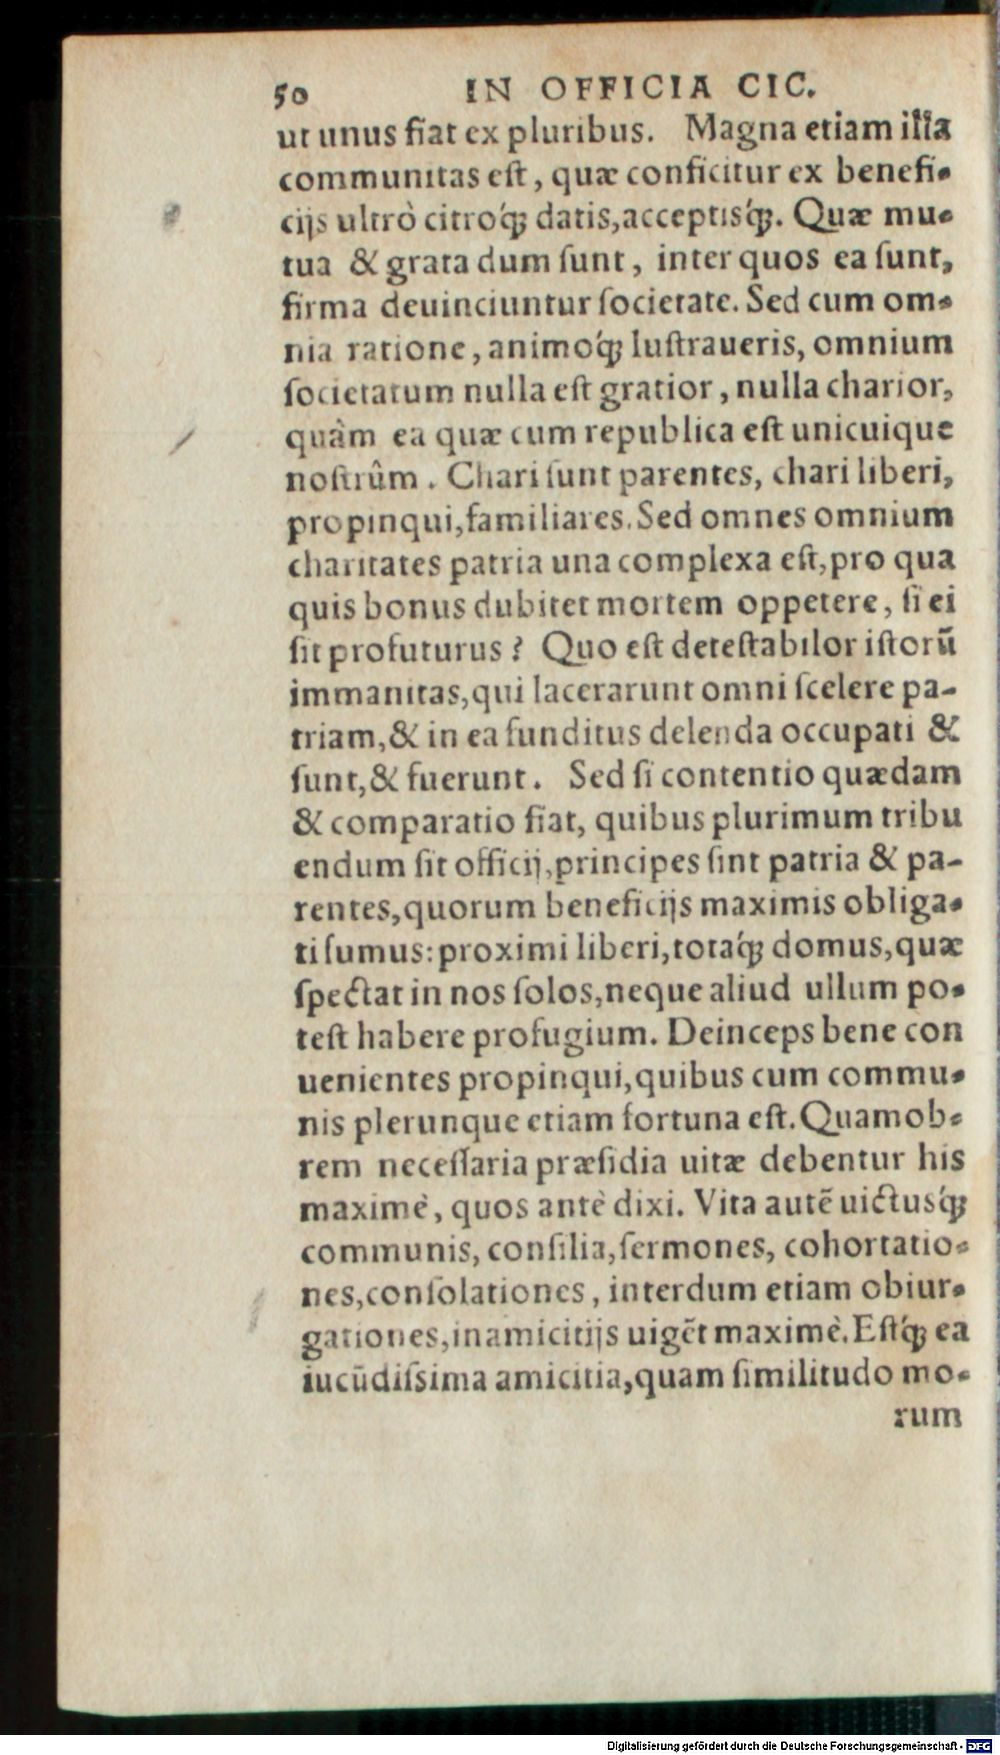 50 IN OFFICIA CIC.
ut unus fiat ex pluribus. Magna etiam illa
communitas eſt, quæ conficitur ex benefi-
cijs ultrò citroq́ꝫ datis,acceptisq́ꝫ. Quæ mu-
tua & grata dum ſunt, inter quos ea ſunt,
firma deuinciuntur ſocietate. Sed cum om-
nia ratione, animoq́ꝫ luſtraueris, omnium
ſocietatum nulla eſt gratior, nulla charior,
quàm ea quæ cum republica eſt unicuique
noſtrûm. Chari ſunt parentes, chari liberi,
propinqui,familiares. Sed omnes omnium
charitates patria una complexa eſt,pro qua
quis bonus dubitet mortem oppetere, ſi ei
ſit profuturus? Quo eſt deteſtabilor iſtorũ
immanitas,qui lacerarunt omni ſcelere pa-
triam,& in ea funditus delenda occupati &
ſunt,& fuerunt. Sed ſi contentio quædam
& comparatio fiat, quibus plurimum tribu
endum ſit officij,principes ſint patria & pa-
rentes,quorum beneficijs maximis obliga-
ti ſumus:proximi liberi,totaq́ꝫ domus,quæ
ſpectat in nos ſolos,neque aliud ullum po-
teſt habere profugium. Deinceps bene con
uenientes propinqui,quibus cum commu-
nis plerunque etiam fortuna eſt. Quamob-
rem neceſſaria præſidia uitæ debentur his
maximè, quos antè dixi. Vita autẽ uictusq́ꝫ
communis, conſilia,ſermones, cohortatio-
nes,conſolationes, interdum etiam obiur-
gationes,in amicitijs uigẽt maximè. Eſtq́ꝫ ea
iucũdiſsima amicitia,quam ſimilitudo mo-
rum
Digitalisierung gefördert durch die Deutsche Forschungsgemeinschaft - DFG